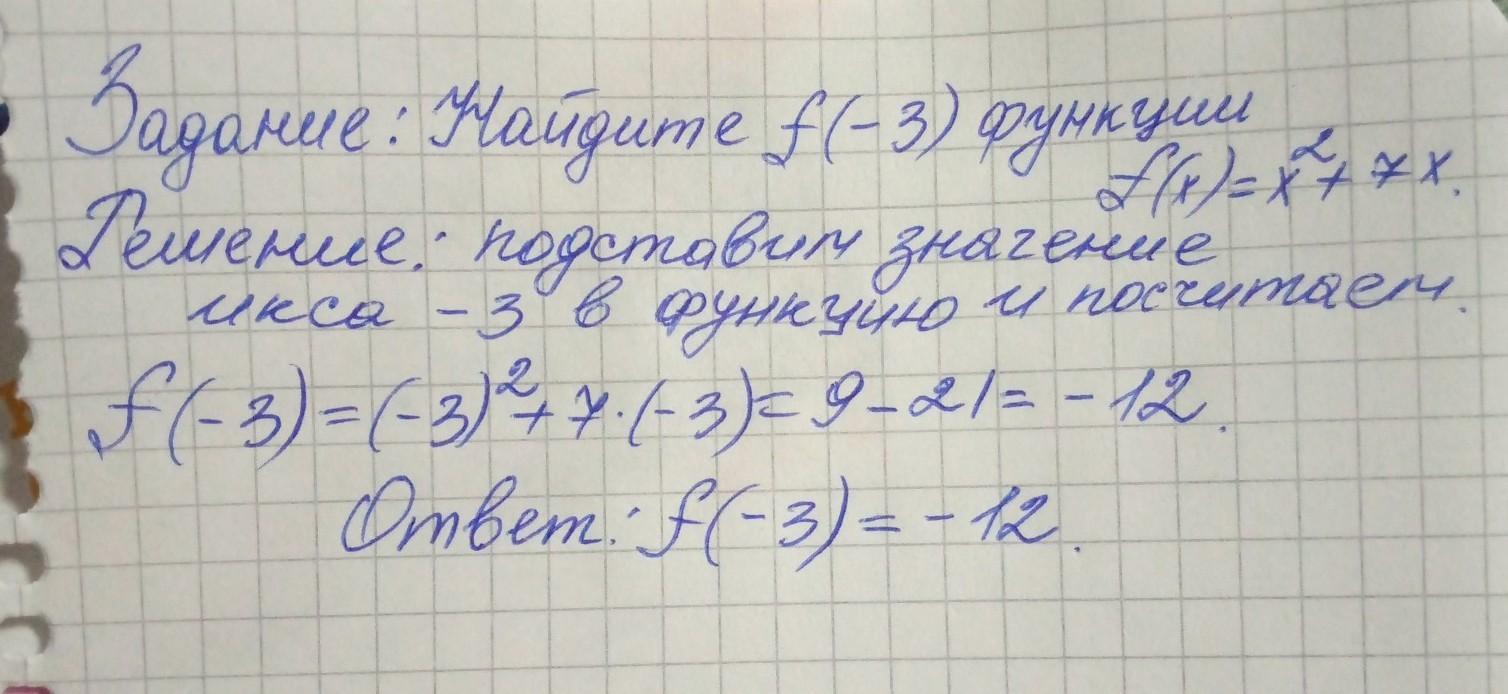 Задание: Найдите f(-3) функции
f(x)=x²+7x.
Решение: подставим значение
икса -3 в функцию и посчитаем.
f(-3)=(-3)²+7·(-3)=9-21=-12.
Ответ: f(-3)=-12.